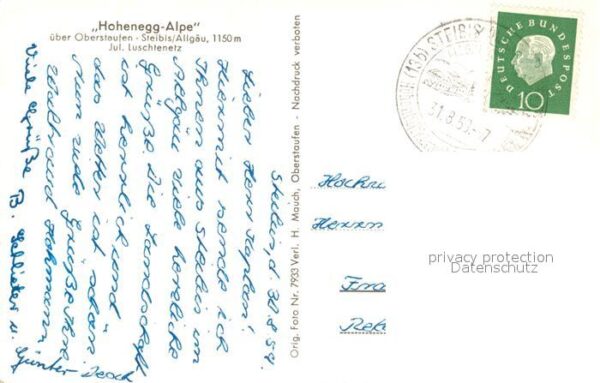 „Hohenegg-Alpe"
über Oberstaufen - Steibis/Allgäu, 1150 m
Jul. Luschtenetz
Steibis, d 30.8.59.
Lieber Herr Kaplan!
Hiermit sende ich
Ihnen aus Steibis im
Allgäu viele herzliche
Grüße. Die Landschaft
ist herrlich und
das Wetter ist schön.
Nun viele Grüße Ihre
Waltraud Hohmann
Viele Grüße B. u.
Günter
Orig. Foto Nr. 7933 Verl. H. Mauch, Oberstaufen - Nachdruck verboten
(13b) STEIBIS
31.8.59.-7
DEUTSCHE BUNDESPOST
10
Hochw
Herrn
privacy protection
Datenschutz